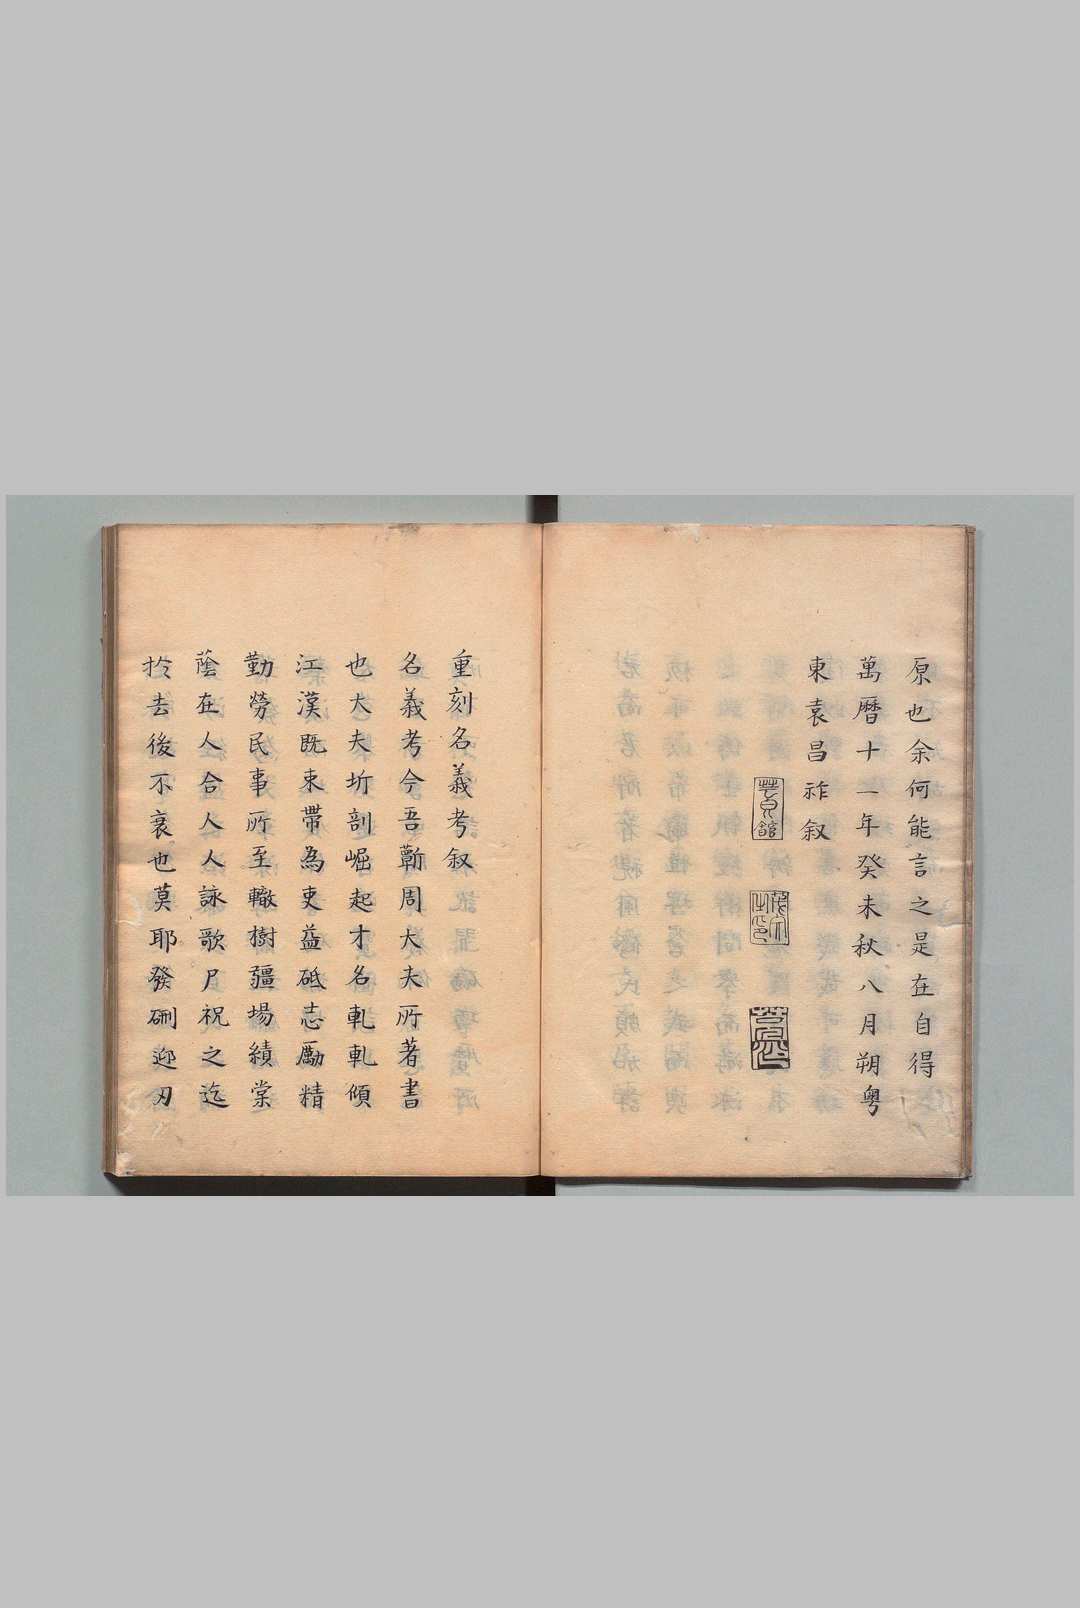 原也余何能言之是在自得
萬曆十一年癸未秋八月朔粤
東袁昌祚叙
重刻名義考叙
名義考今吾蘄周大夫所著書
也大夫圻剖崛起才名軋軋傾
江漢既束帶為吏益砥志勵精
勤勞民事所至轍樹疆場績棠
蔭在人合人人詠歌尸祝之迄
於去後不衰也莫耶發硎迎刃